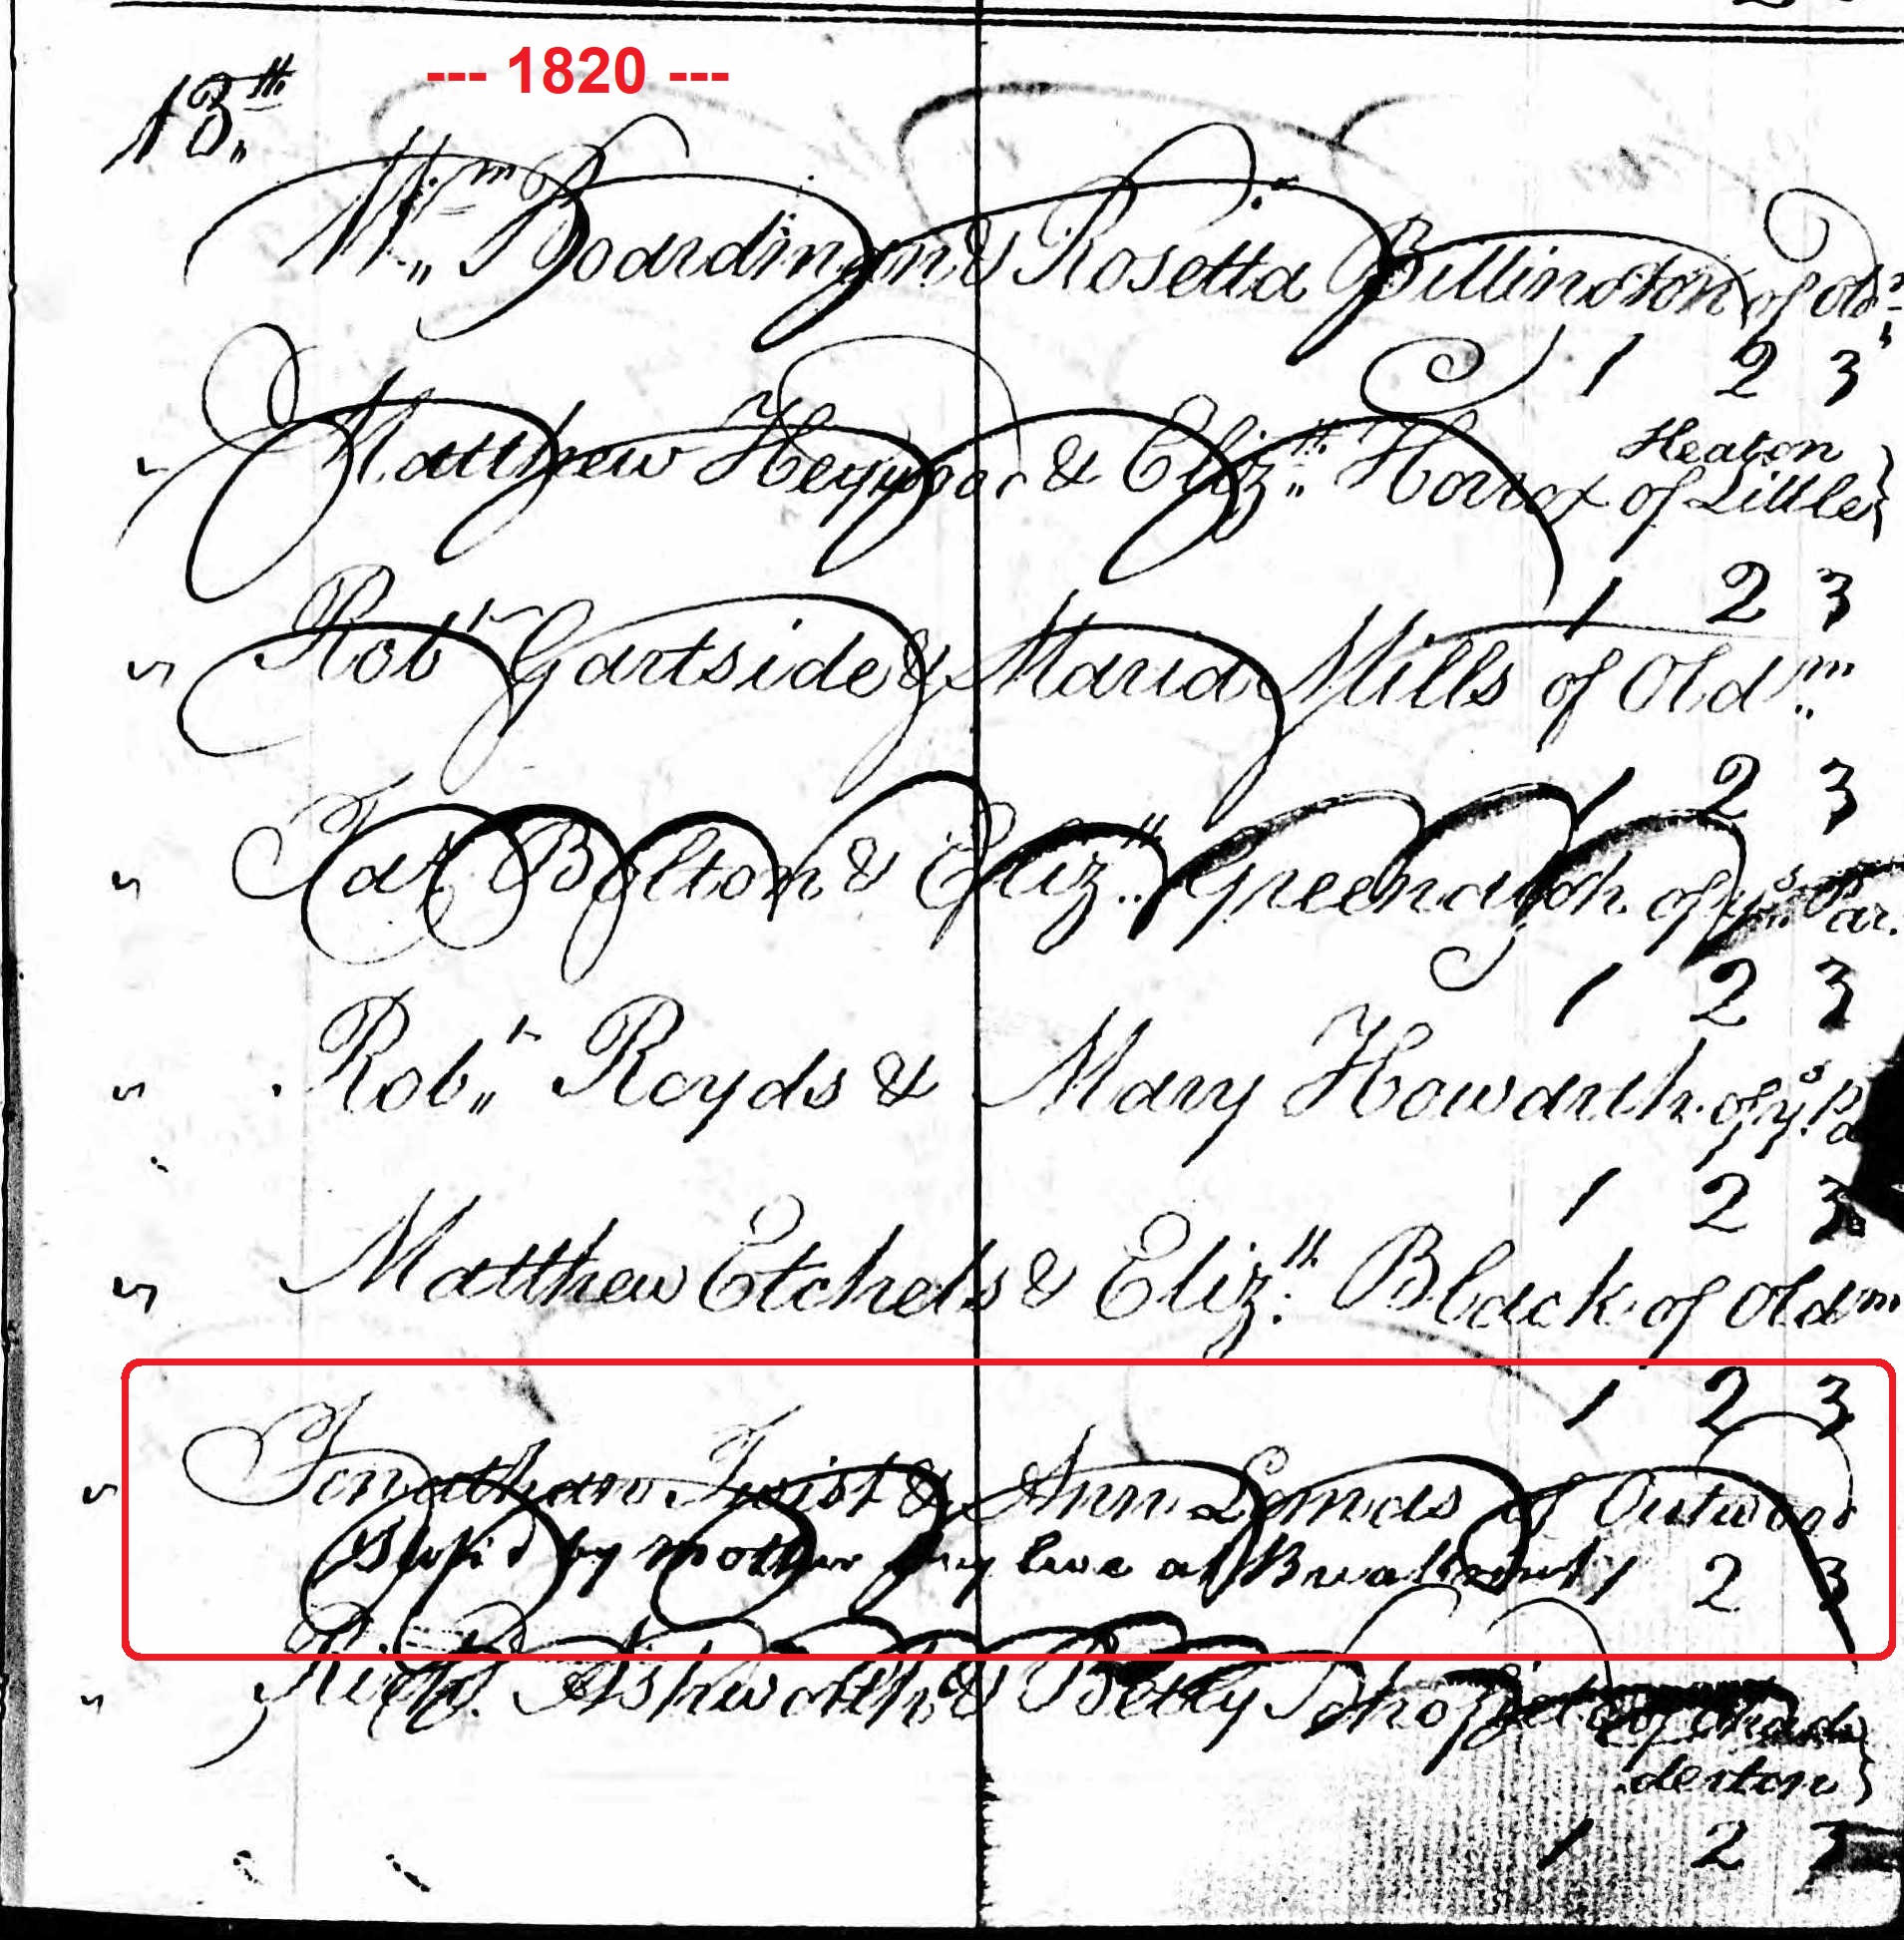 --- 1820 ---
13th
Wm Boardman & Rosetta Billington of Oldm
1 2 3
Matthew Heywood & Elizth Horrox of Little Heaton
1 2 3
Robt Gartside & Maria Mills of Oldm
1 2 3
Jas Bolton & Elizth Greenalgh of ys Par.
1 2 3
Robt Royds & Mary Howarth of ys Pa
1 2 3
Matthew Etchels & Elizth Black of Oldm
1 2 3
Jonathan Twist & Ann Lomas of Outwood
by mother they live at 1 2 3
Richd Ashworth & Betty of Chad
derton
1 2 3